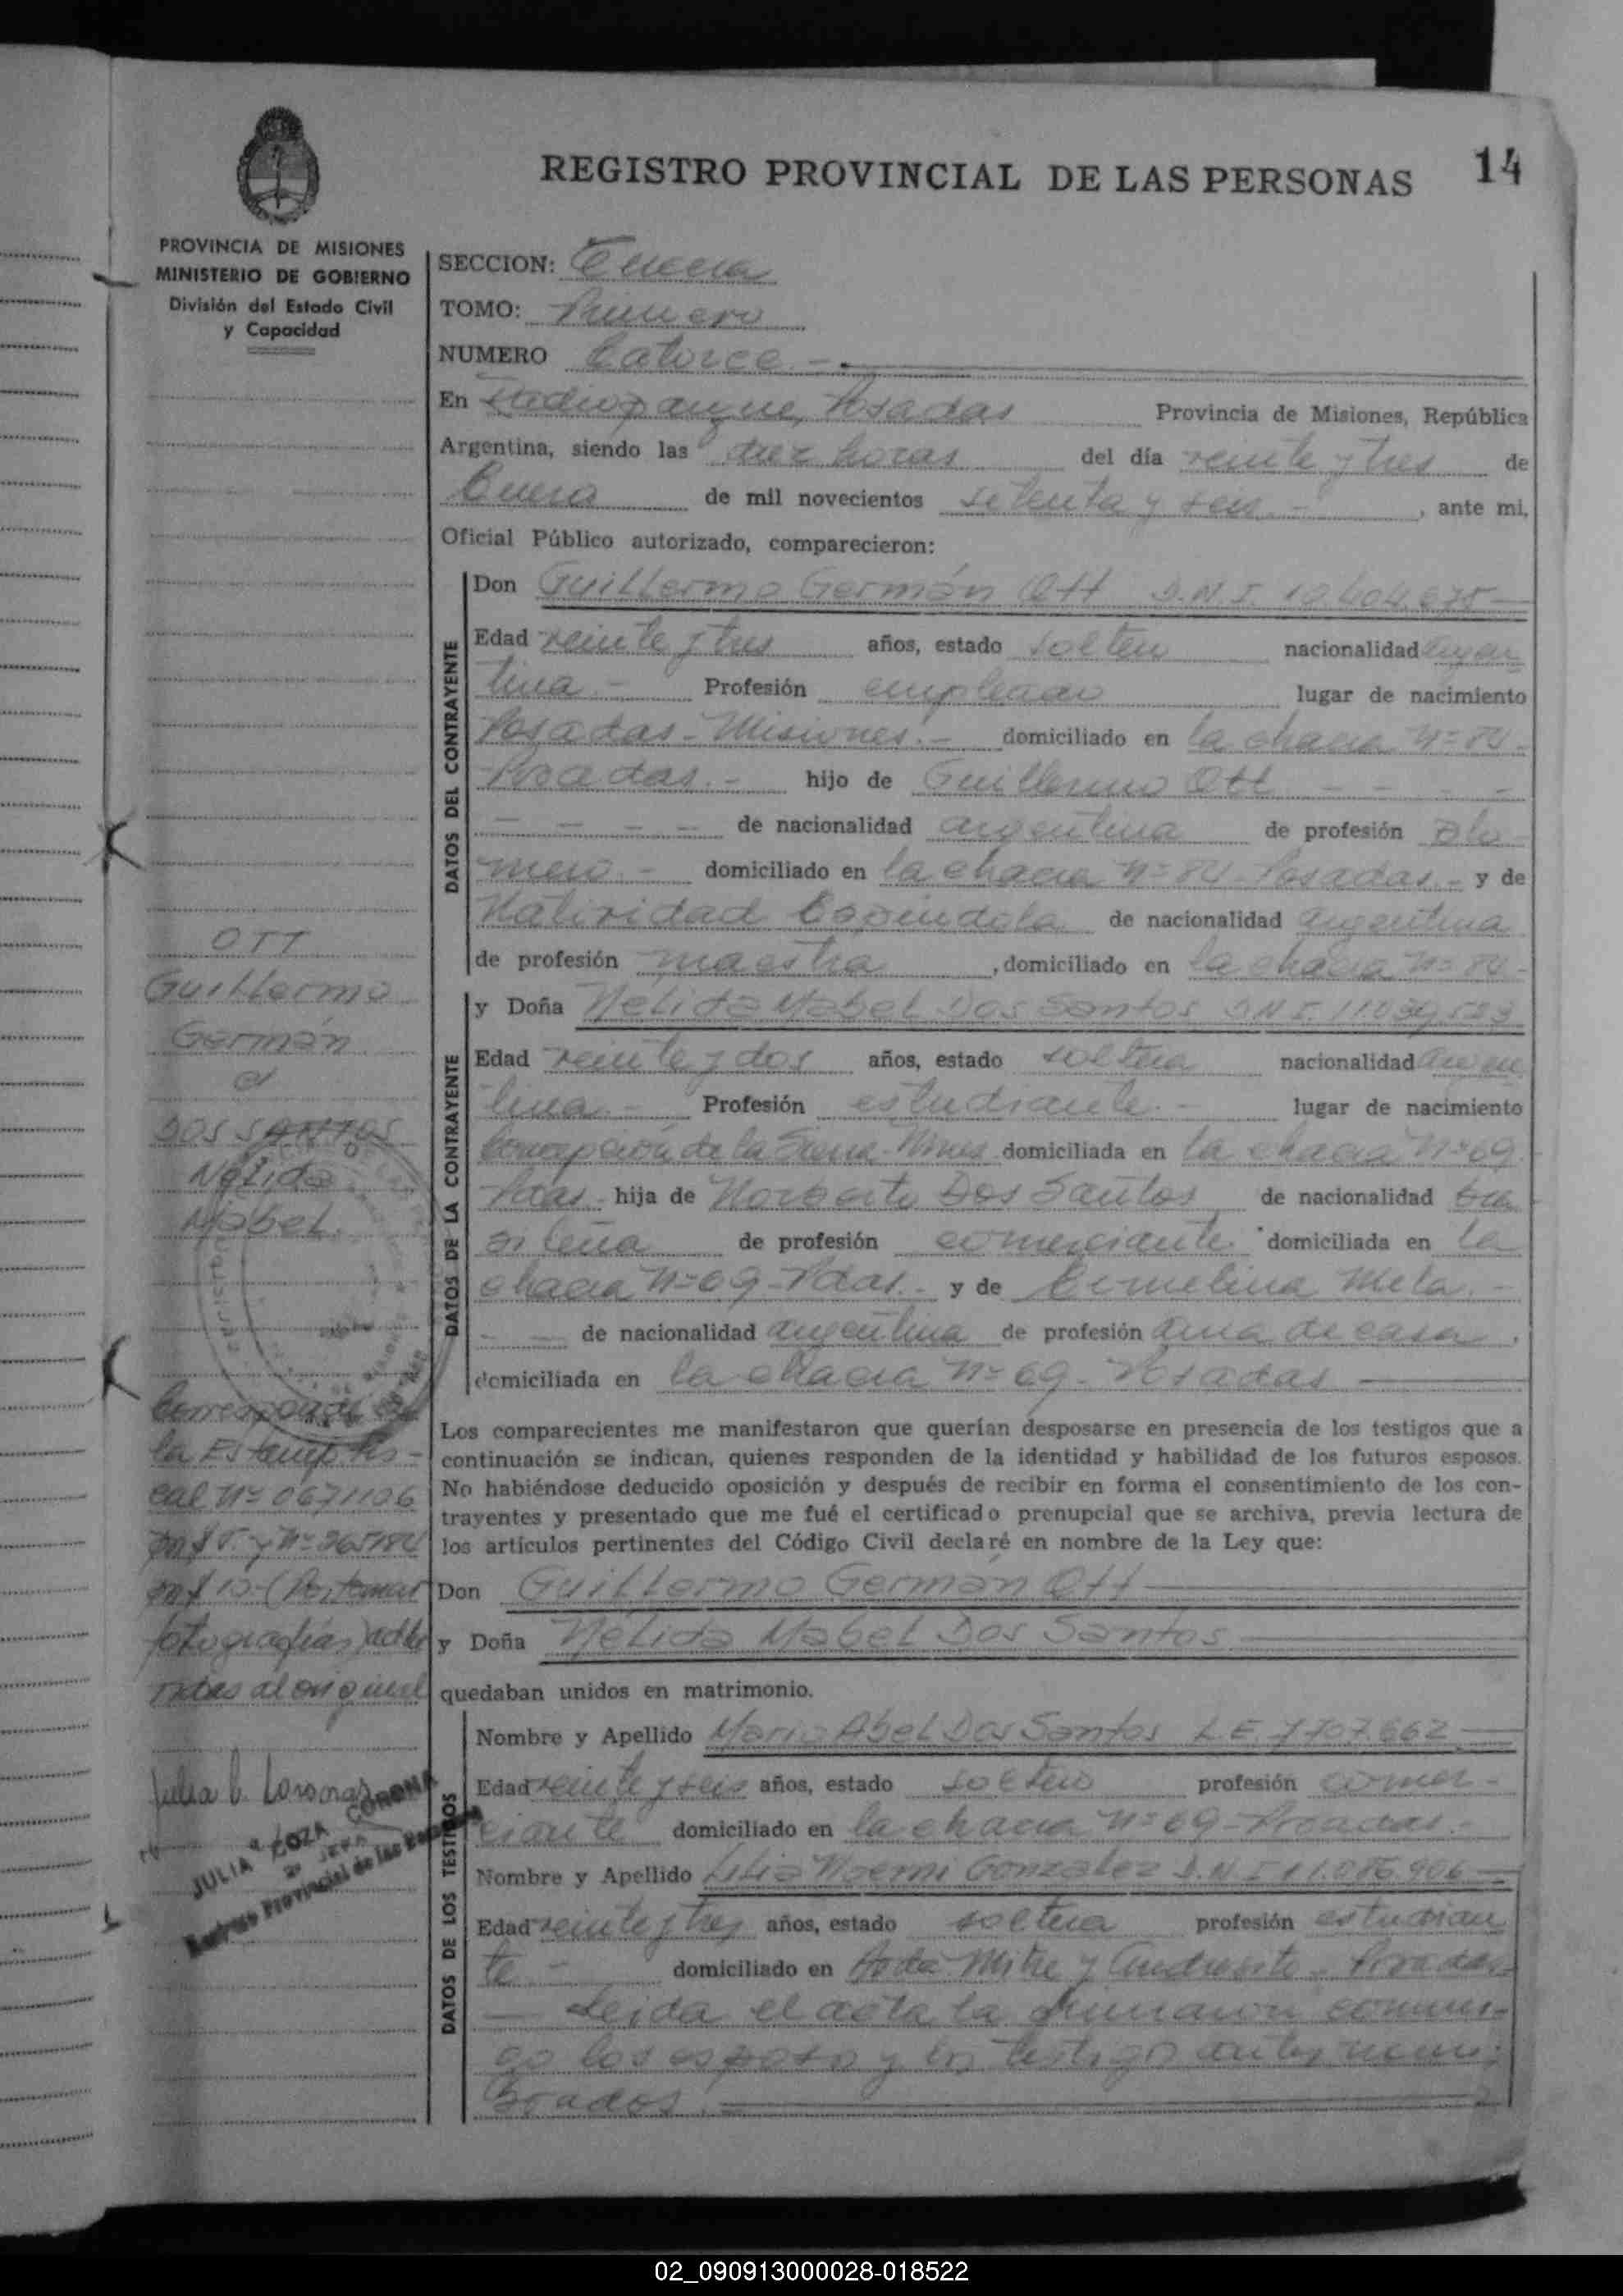 REGISTRO PROVINCIAL DE LAS PERSONAS 14
PROVINCIA DE MISIONES
MINISTERIO DE GOBIERNO
División del Estado Civil
y Capacidad
SECCION:
TOMO: Primero
NUMERO Catorce -
En Posadas Provincia de Misiones, República
Argentina, siendo las diez horas del día veinte y tres de
Enero de mil novecientos setenta y seis - , ante mi,
Oficial Público autorizado, comparecieron:
DATOS DEL CONTRAYENTE
Don Guillermo Germán Ott D.N.I.
Edad veinte y tres años, estado soltero nacionalidad argen
tina - Profesión empleado lugar de nacimiento
Posadas - Misiones.- domiciliado en la chacra Nº 84 -
Posadas.- hijo de Guillermo Ott - - - -
- - - - de nacionalidad argentina de profesión plo
mero - domiciliado en la chacra Nº 84 - Posadas.- y de
Natividad Espíndola de nacionalidad argentina
de profesión maestra , domiciliado en la chacra Nº 84 -
DATOS DE LA CONTRAYENTE
y Doña Nélida Mabel Dos Santos D.N.I.
Edad veinte y dos años, estado soltera nacionalidad argen
tina - Profesión estudiante.- lugar de nacimiento
Concepción de la Sierra - Mnes domiciliada en la chacra Nº 69
Pdas.- hija de Norberto Dos Santos de nacionalidad bra
sileña de profesión comerciante domiciliada en la
chacra Nº 69 - Pdas.- y de Ermelina Mela.-
- - de nacionalidad argentina de profesión ama de casa .
domiciliada en la chacra Nº 69 - Posadas
Los comparecientes me manifestaron que querían desposarse en presencia de los testigos que a
continuación se indican, quienes responden de la identidad y habilidad de los futuros esposos.
No habiéndose deducido oposición y después de recibir en forma el consentimiento de los con-
trayentes y presentado que me fué el certificado prenupcial que se archiva, previa lectura de
los artículos pertinentes del Código Civil declaré en nombre de la Ley que:
Don Guillermo Germán Ott
y Doña Nélida Mabel Dos Santos
quedaban unidos en matrimonio.
DATOS DE LOS TESTIGOS
Nombre y Apellido Mario Abel Dos Santos L.E. 7.707.662
Edad veinte y seis años, estado soltero profesión comer-
ciante domiciliado en la chacra Nº 69 - Posadas.-
Nombre y Apellido Lilia Noemi Gonzalez D.N.I 11.086.906
Edad veinte y tres años, estado soltera profesión estudian
te - domiciliado en Avda Mitre y Andresito - Posadas
- Leida el acta la firmaron conmi-
go los esposos y los testigos antes nom-
brados.
OTT
Guillermo
Germán
c/
DOS SANTOS
Nélida
Mabel
Corresponde a
la Estamp fis-
cal Nº 0671106
fotografías) adhe
ridas al original
JULIA COZA CORONA
Registro Provincial de las Personas
02_090913000028-018522